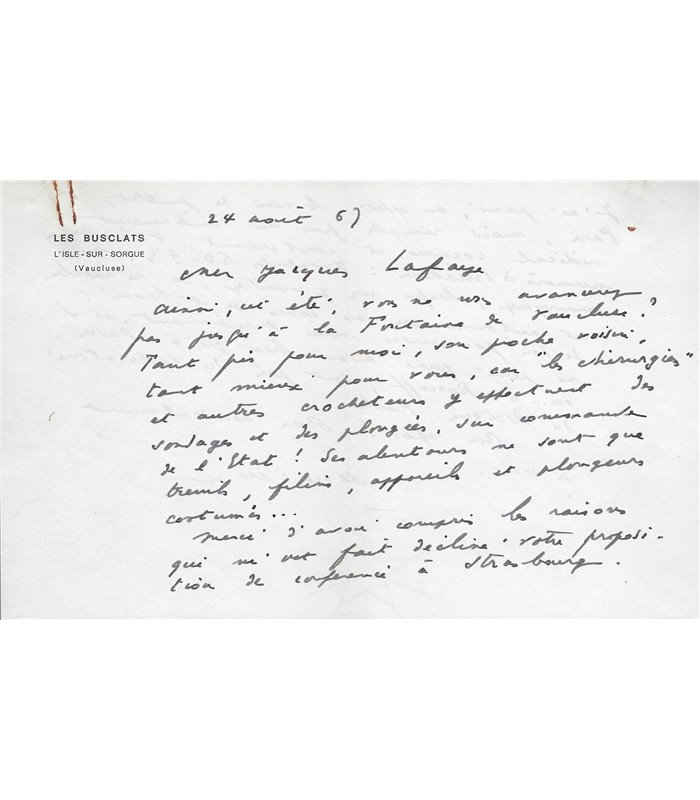 24 août 67
LES BUSCLATS
L'ISLE - SUR - SORGUE
(Vaucluse)
Cher Jacques Lafaye
ainsi, cet été, vous ne vous avancerez
pas jusqu'à la Fontaine de Vaucluse ?
Tant pis pour moi, son proche voisin,
tant mieux pour vous, car "les chirurgies"
et autres crocheteurs y effectuent des
sondages et des plongées, sur commande
de l'Etat ! Ses alentours ne sont que
treuils, filins, appareils et plongeurs
costumés...
Merci d'avoir compris les raisons
qui m'ont fait décliner votre proposi-
tion de conférence à Strasbourg.